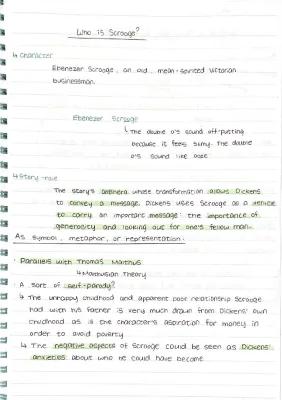 Who is Scrooge?
↳ Character
Ebenezer Scrooge, an old, mean-spirited Victorian
businessman.
Ebenezer Scrooge
↳ The double o's sound off-putting
because it feels slimy. The double
o's sound like ooze
↳ Story-role
The story's antihero whose transformation allows Dickens
to convey a message. Dickens uses Scrooge as a vehicle
to carry an important message: the importance of
generosity and looking out for one's fellow man.
As symbol, metaphor, or representation:
· Parallels with Thomas Malthus
↳ Malthusian Theory
· A sort of self-parody?
↳ The unhappy childhood and apparent poor relationship Scrooge
had with his father is very much drawn from Dickens' own
childhood as is the character's aspiration for money in
order to avoid poverty
↳ The negative aspects of Scrooge could be seen as Dickens'
anxieties about who he could have become